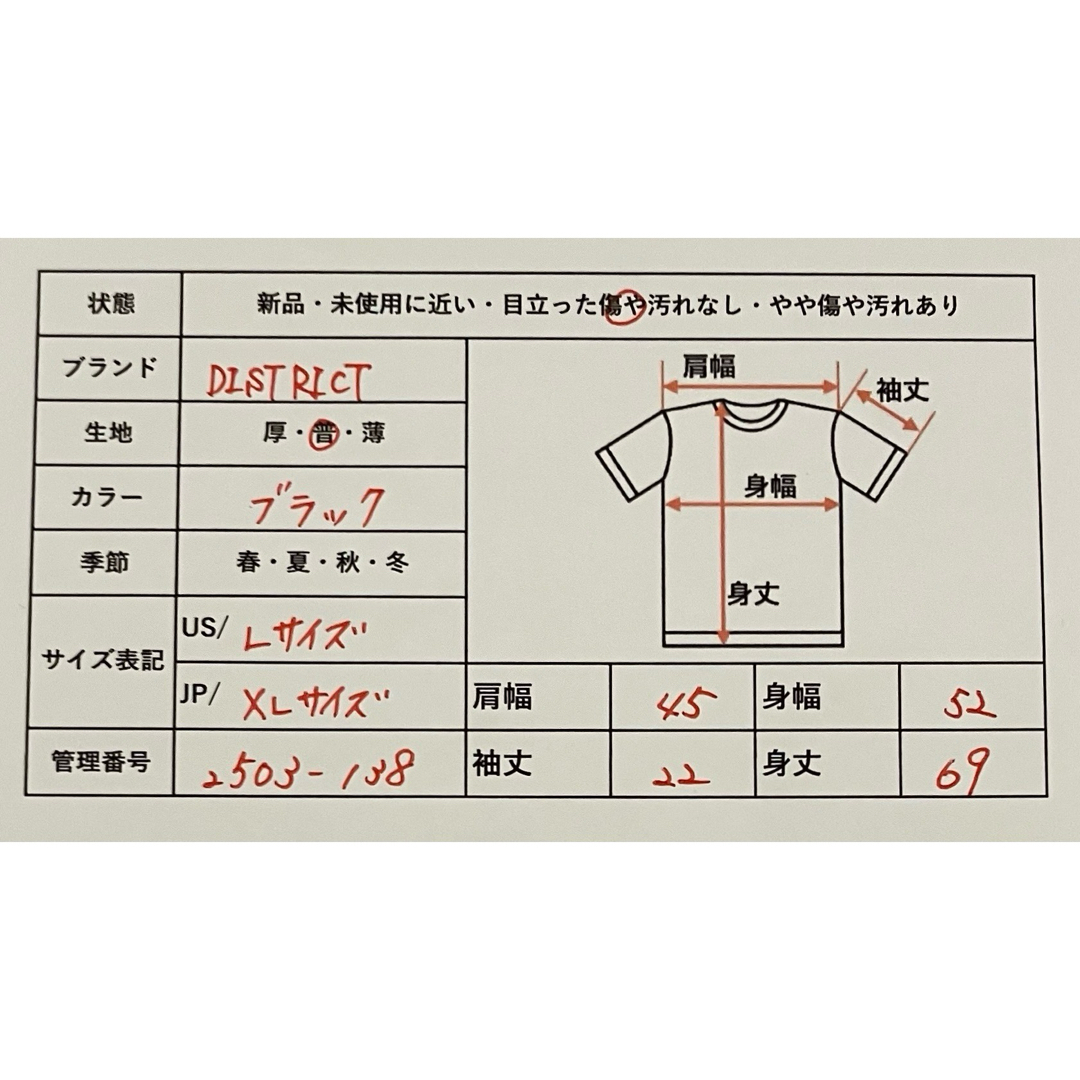 状態 新品・未使用に近い・目立った傷や汚れなし・やや傷や汚れあり
ブランド DISTRICT
生地 厚・普・薄
カラー ブラック
季節 春・夏・秋・冬
サイズ表記 US/ Lサイズ
JP/ XLサイズ
管理番号 2503-138
肩幅
袖丈
身幅
身丈
肩幅 45 身幅 52
袖丈 22 身丈 69